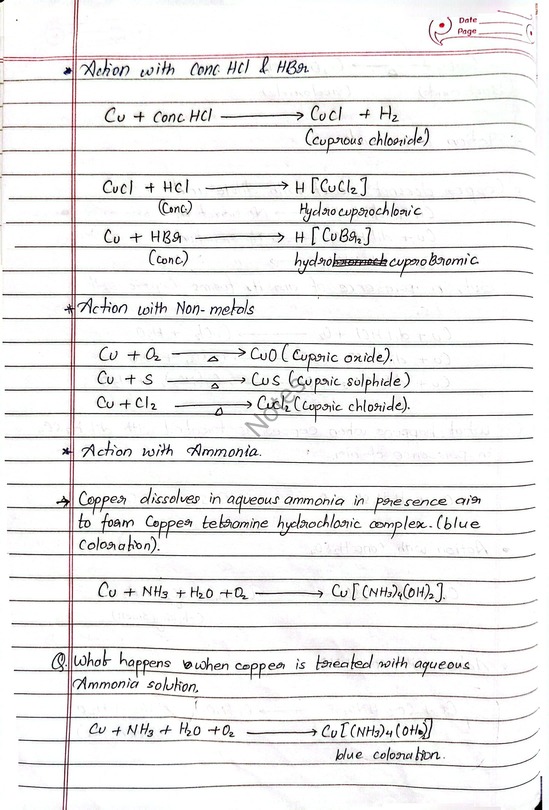 Date
Page
* Action with Conc. HCl & HBr
Cu + Conc HCl ⟶ CuCl + H₂
(Cuprous chloride)
CuCl + HCl ⟶ H [CuCl₂]
(Conc.) Hydrocuprochloric
Cu + HBr ⟶ H [CuBr₂]
(Conc) hydro cuprobromic
* Action with Non-metals
Cu + O₂ ⟶ CuO (Cupric oxide).
△
Cu + S ⟶ CuS (Cupric sulphide)
△
Cu + Cl₂ ⟶ CuCl₂ (Cupric chloride).
△
Notes
* Action with Ammonia.
→ Copper dissolves in aqueous ammonia in presence air
to form Copper tetramine hydrochloric complex. (blue
coloration).
Cu + NH₃ + H₂O + O₂ ⟶ Cu [(NH₃)₄(OH)₂].
Q. What happens when copper is treated with aqueous
Ammonia solution.
Cu + NH₃ + H₂O + O₂ ⟶ Cu [(NH₃)₄(OH)₂]
blue coloration.